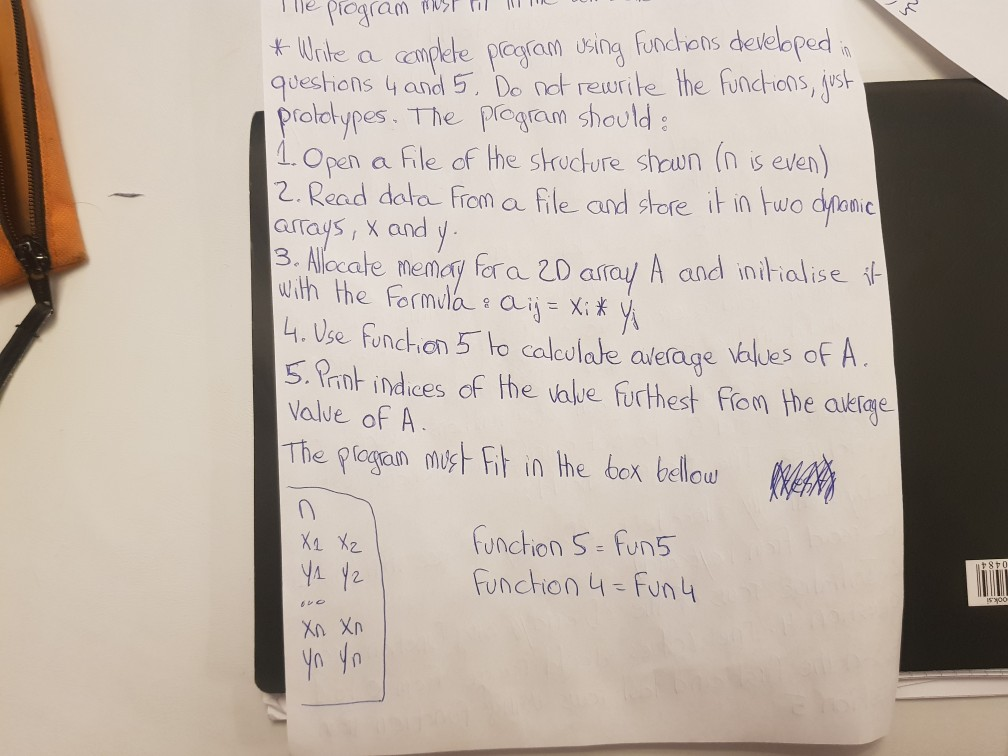 The program must fit in the
* Write a complete program using functions developed in
questions 4 and 5. Do not rewrite the functions, just
prototypes. The program should:
1. Open a file of the structure shown (n is even)
2. Read data from a file and store it in two dynamic
arrays, x and y.
3. Allocate memory for a 2D array A and initialise it
with the formula: aij = xi * yj
4. Use function 5 to calculate average values of A.
5. Print indices of the value furthest from the average
value of A.
The program must fit in the box bellow
n
x1 x2
y1 y2
...
xn xn
yn yn
function 5 = fun5
function 4 = fun4
0484